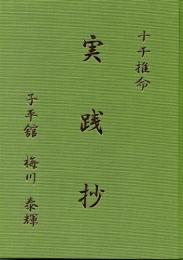 十干推命
実践抄
子平舘 梅川 泰輝